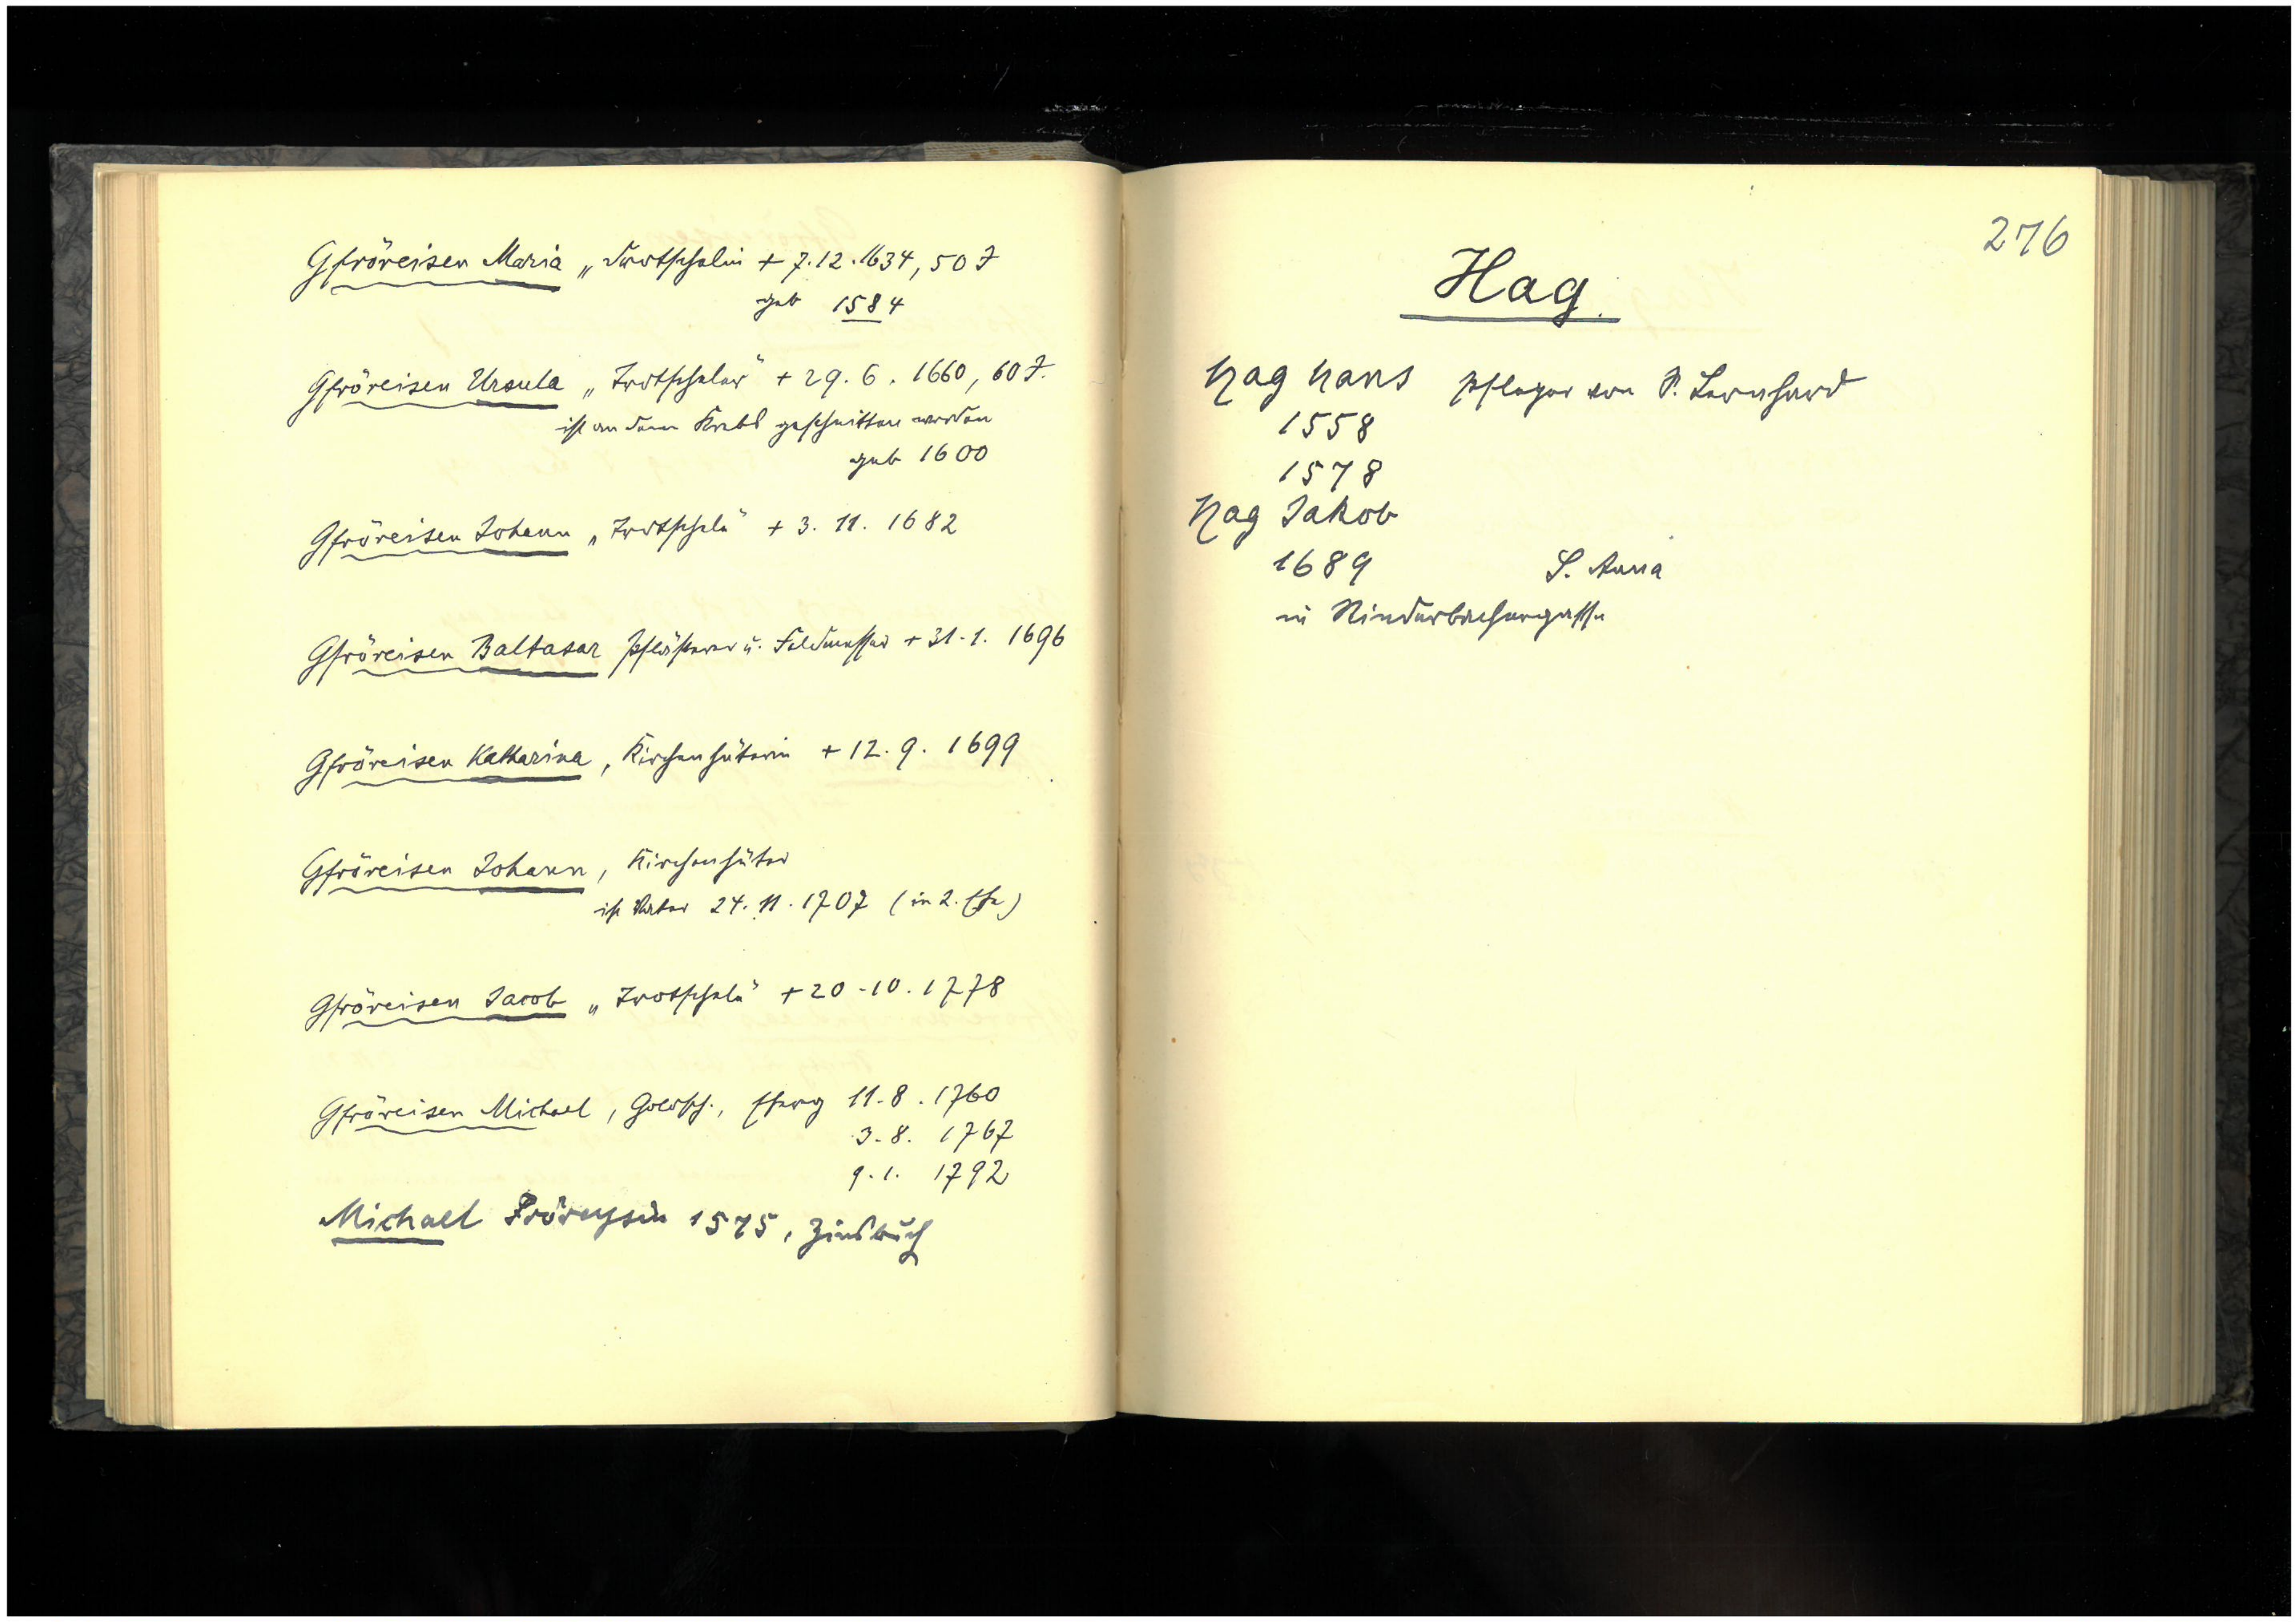 Gfröreisen Maria „Trotschelin + 7.12.1634, 50 J
geb 1584
Gfröreisen Ursula „Trotscheler“ + 29. 6. 1660, 60 J.
ist an dem Krebs geschnitten worden
geb 1600
Gfröreisen Johann „Trotschele“ + 3. 11. 1682
Gfröreisen Baltasar Pflästerer u. Feldmesser + 31.1. 1696
Gfröreisen Katharina, Kirchenhüterin + 12. 9. 1699
Gfröreisen Johann, Kirchenhüter
ist Vater 24. 11. 1707 (in 2. Ehe)
Gfröreisen Jacob „Trotschele“ + 20.10. 1778
Gfröreisen Michael, Goldsch., Eherg 11.8. 1760
3.8. 1767
9.1. 1792
Michael Fröreysin 1575, Zinsbuch
276
Hag.
Hag Hans Pfleger von S. Leonhard
1558
1578
Hag Jakob
1689 S. Anna
in Rinderbachergasse